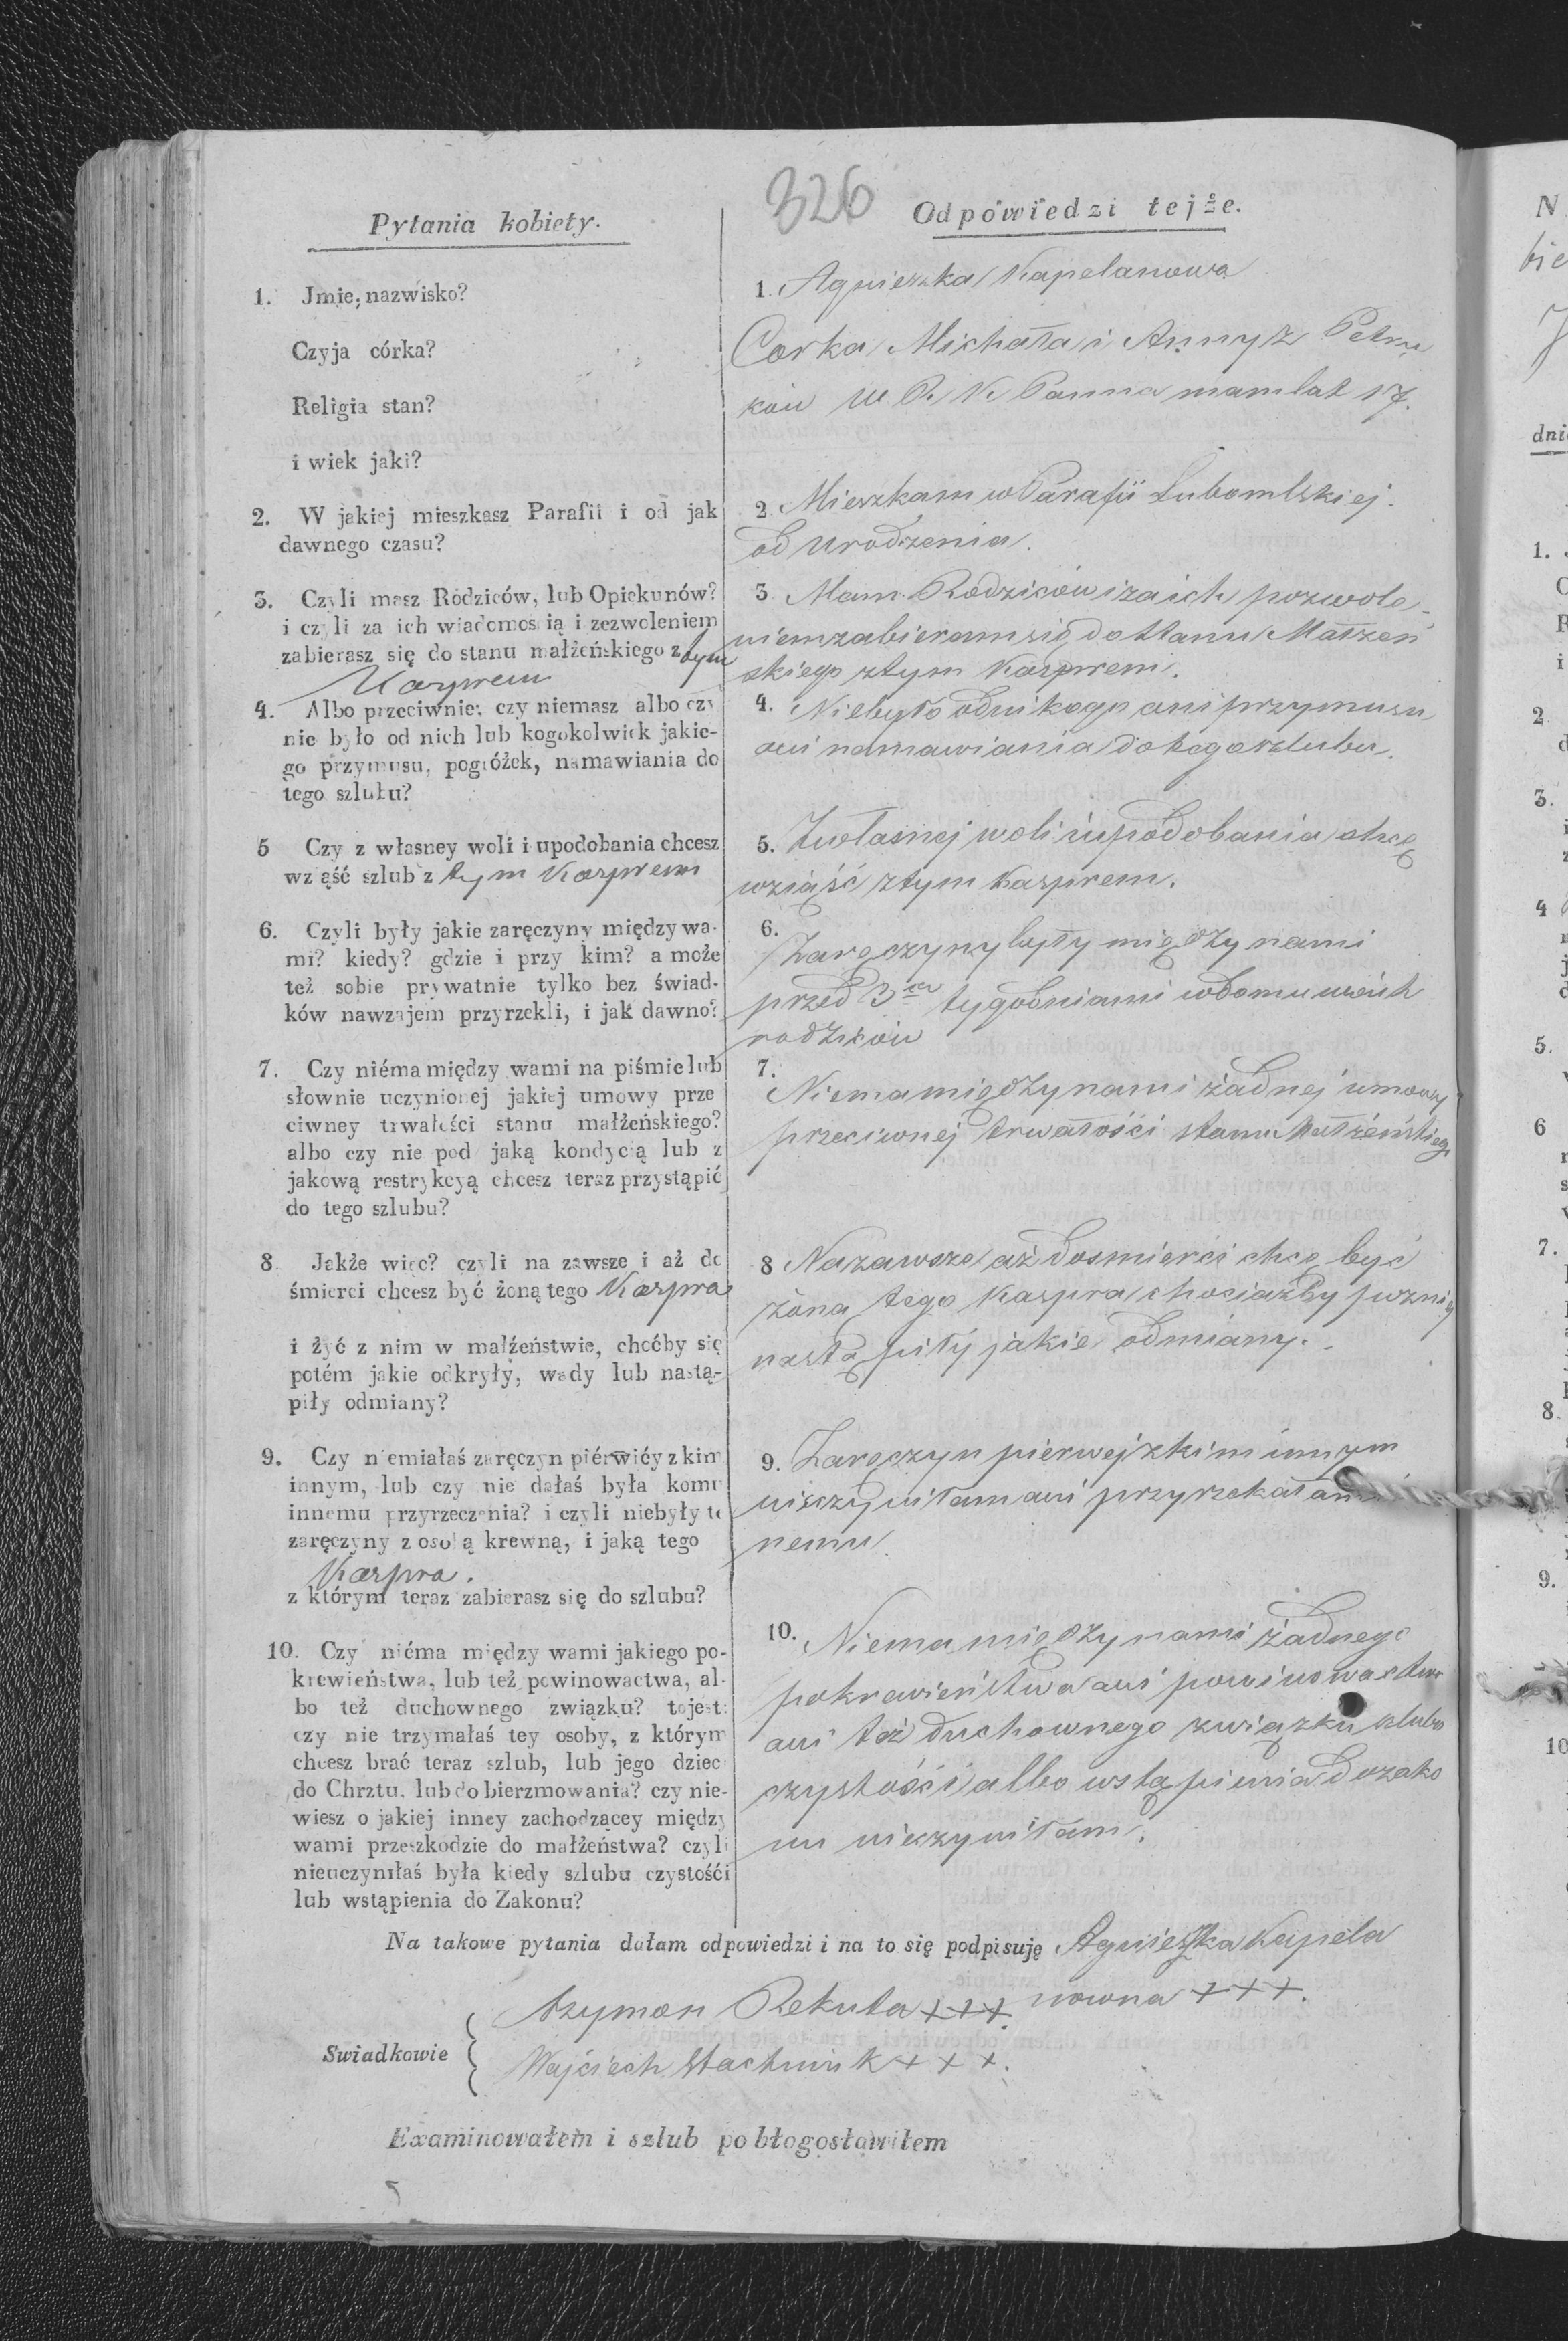 326
Pytania kobiety.
1. Jmie, nazwisko?
Czyja córka?
Religia stan?
i wiek jaki?
2. W jakiej mieszkasz Parafii i od jak
dawnego czasu?
3. Czyli masz Rodziców, lub Opiekunów?
i czyli za ich wiadomością i zezwoleniem
zabierasz się do stanu małżeńskiego z tym
Kasprem
4. Albo przeciwnie: czy niemasz albo czy
nie było od nich lub kogokolwiek jakie-
go przymusu, pogróżek, namawiania do
tego szlubu?
5 Czy z własney woli i upodobania chcesz
wziąść szlub z tym Kasprem
6. Czyli były jakie zaręczyny między wa-
mi? kiedy? gdzie i przy kim? a może
też sobie prywatnie tylko bez świad-
ków nawzajem przyrzekli, i jak dawno?
7. Czy niéma między wami na piśmie lub
słownie uczynionej jakiej umowy prze
ciwney trwałości stanu małżeńskiego?
albo czy nie pod jaką kondycią lub z
jakową restrykcyą chcesz teraz przystąpić
do tego szlubu?
8 Jakże więc? czyli na zawsze i aż do
śmierci chcesz być żoną tego Kaspra
i żyć z nim w małżeństwie, choćby się
potém jakie odkryły, wady lub nastą-
piły odmiany?
9. Czy niemiałaś zaręczyn piérwićy z kim
innym, lub czy nie dałaś była komu
innemu przyrzeczenia? i czyli niebyły te
zaręczyny z osobą krewną, i jaką tego
Kaspra.
z którym teraz zabierasz się do szlubu?
10. Czy niéma między wami jakiego po-
krewieństwa, lub też powinowactwa, al-
bo też duchownego związku? tojest:
czy nie trzymałaś tey osoby, z którym
chcesz brać teraz szlub, lub jego dzieci
do Chrztu, lub do bierzmowania? czy nie-
wiesz o jakiej inney zachodzącey między
wami przeszkodzie do małżeństwa? czyli
nieuczyniłaś była kiedy szlubu czystośći
lub wstąpienia do Zakonu?
Odpowiedzi tejże.
1. Agnieszka Kapelanowa
Corka Michała i Anny z Petru
ków W R K Panna mam lat 17.
2. Mieszkam w Parafii Lubomlskiej.
od urodzenia.
3 Mam Rodziców i za ich pozwole-
niem zabieram się do stanu Małżeń
skiego z tym Kasprem.
4. Niebyło od nikogo ani przymusu
ani namawiania do tego szlubu.
5. Z własnej woli i upodobania chcę
wziąść z tym Kasprem.
6. Zaręczyny były między nami
przed 3ma tygodniami w domu moich
rodziców
7. Niema między nami żadnej umowy
przeciwnej trwałości stanu Małżeńskiego
8 Nazawsze aż do smierci chcę być
żoną tego Kaspra chociażby puzniej
nastąpiły jakie odmiany.
9. Zaręczyn pierwej z kim innym
nieczyniłam ani przyrzekałam
nemu
10. Niema między nami żadnego
pokrewieństwa ani powinowactwa
ani też duchownego związku szlubu
czystości albo wstąpienia do zako
nu nieczyniłam.
Na takowe pytania dałam odpowiedzi i na to się podpisuję Agnieszka Kapela
nowna +++.
Swiadkowie
Szymon Rekuta +++.
Wojciech Stachniuk +++.
Examinowałem i szlub pobłogosławiłem
N
bie
dni
1.
2
3.
4
5.
6
7.
8.
9.
10